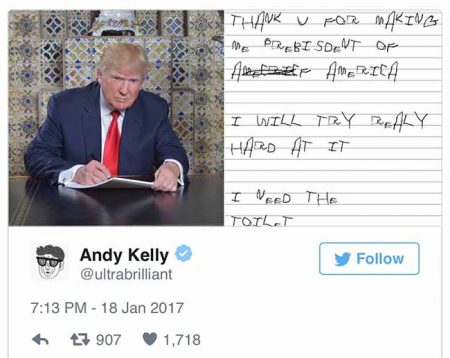 THANK U FOR MAKING
ME PREBISDENT OF
AMERICA
I WILL TRY REALY
HARD AT IT
I NEED THE
TOILET
Andy Kelly
@ultrabrilliant
Follow
7:13 PM - 18 Jan 2017
907
1,718